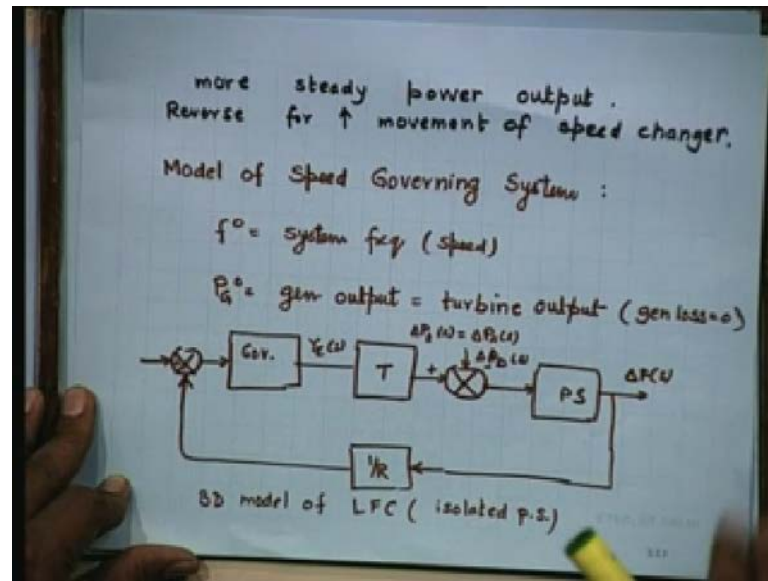 more steady power output.
Reverse for ↑ movement of speed changer.
Model of Speed Governing System :
f° = system freq (speed)
P_G° = gen output = turbine output (gen loss=0)
ΔF(s)
Gov.
T
+
PS
1/R
BD model of LFC ( isolated p.s.)